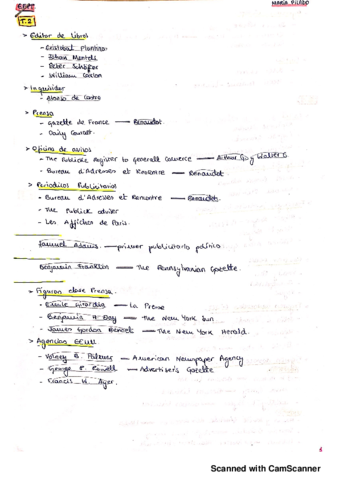 MARÍA PICADO
EEPP
T.2
> Editor de Libros
- Cristobal Plantino
- Johan Mentels
- Peter Schöffer
- William Caxton
> Inquisidor
- Alonso de Castro
> Prensa
- Gazette de France — Renaudot
- Daily Courant.
> Oficina de avisos
- The Publicke Register to generall Commerce — Arthur Guy Walter C
- Bureau d'Adresses et Rencontre — Renaudot.
> Periódicos Publicitarios
- Bureau d'Adresses et Rencontre — Renaudot.
- The Publick adviser
- Les Affiches de Paris.
Samuel Adams — primer publicitario político.
Benjamin Franklin — The Pennsylvanian Gazette.
> Figuras clave Prensa.
- Emile Girardin — La Presse
- Benjamin H Day — The New York Sun
- James Gordon Bennet — The New York Herald.
> Agencias EEUU
- Volney B Palmer — American Newspaper Agency
- George P. Rowell — Advertisers Gazette
- Francis W Ayer.
Scanned with CamScanner